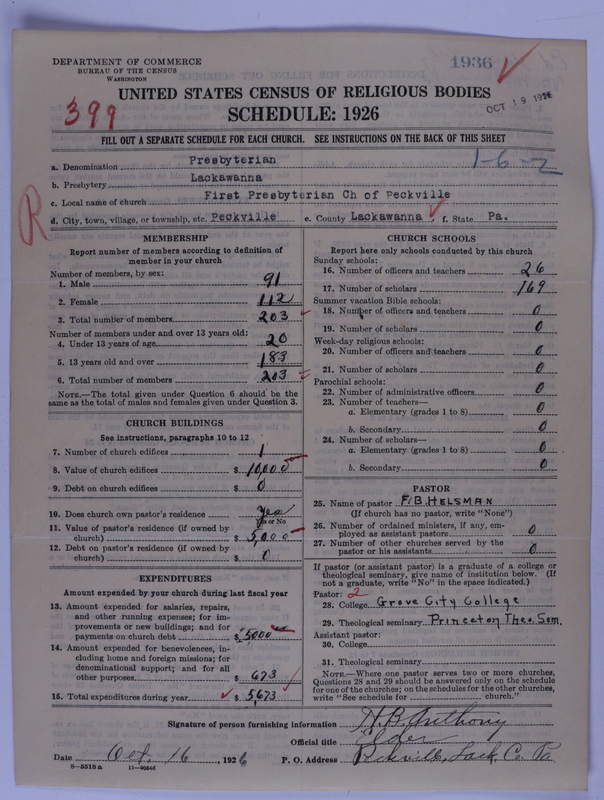 DEPARTMENT OF COMMERCE
BUREAU OF THE CENSUS
WASHINGTON
1936
UNITED STATES CENSUS OF RELIGIOUS BODIES
OCT 19 1926
399
SCHEDULE: 1926
FILL OUT A SEPARATE SCHEDULE FOR EACH CHURCH. SEE INSTRUCTIONS ON THE BACK OF THIS SHEET
a. Denomination Presbyterian
1-6-2
b. Presbytery Lackawanna
c. Local name of church First Presbyterian Ch of Peckville
R
d. City, town, village, or township, etc. Peckville e. County Lackawanna f. State Pa.
MEMBERSHIP
Report number of members according to definition of
member in your church
Number of members, by sex:
1. Male 91
2. Female 112
3. Total number of members 203
Number of members under and over 13 years old:
4. Under 13 years of age 20
5. 13 years old and over 183
6. Total number of members 203
NOTE.—The total given under Question 6 should be
same as the total of males and females given under Question 3.
CHURCH BUILDINGS
See instructions, paragraphs 10 to 12
7. Number of church edifices 1
8. Value of church edifices $ 10,000
9. Debt on church edifices $ 0
10. Does church own pastor's residence Yes
Yes or No
11. Value of pastor's residence (if owned by
church) $ 5,000
12. Debt on pastor's residence (if owned by
church) $ 0
EXPENDITURES
Amount expended by your church during last fiscal year
13. Amount expended for salaries, repairs,
and other running expenses; for im-
provements or new buildings; and for
payments on church debt $ 5000
14. Amount expended for benevolences, in-
cluding home and foreign missions; for
denominational support; and for all
other purposes $ 673
15. Total expenditures during year $ 5,673
CHURCH SCHOOLS
Report here only schools conducted by this church
Sunday schools:
16. Number of officers and teachers 26
17. Number of scholars 169
Summer vacation Bible schools:
18. Number of officers and teachers 0
19. Number of scholars 0
Week-day religious schools:
20. Number of officers and teachers 0
21. Number of scholars 0
Parochial schools:
22. Number of administrative officers 0
23. Number of teachers—
a. Elementary (grades 1 to 8) 0
b. Secondary 0
24. Number of scholars—
a. Elementary (grades 1 to 8) 0
b. Secondary 0
PASTOR
25. Name of pastor F.B. HELSMAN
(If church has no pastor, write "None")
26. Number of ordained ministers, if any, em-
ployed as assistant pastors 0
27. Number of other churches served by the
pastor or his assistants 0
If pastor (or assistant pastor) is a graduate of a college or
theological seminary, give name of institution below. (If
not a graduate, write "No" in the space indicated.)
Pastor: 2
28. College Grove City College
29. Theological seminary Princeton Theo. Sem.
Assistant pastor:
30. College
31. Theological seminary
NOTE.—Where one pastor serves two or more churches,
Questions 28 and 29 should be answered only on the schedule
for one of the churches; on the schedules for the other churches,
write "See schedule for church."
Signature of person furnishing information H. B. Anthony
Official title Elder
Date Oct. 16, 1926 P. O. Address Peckville, Lack. Co. Pa
8-5518a